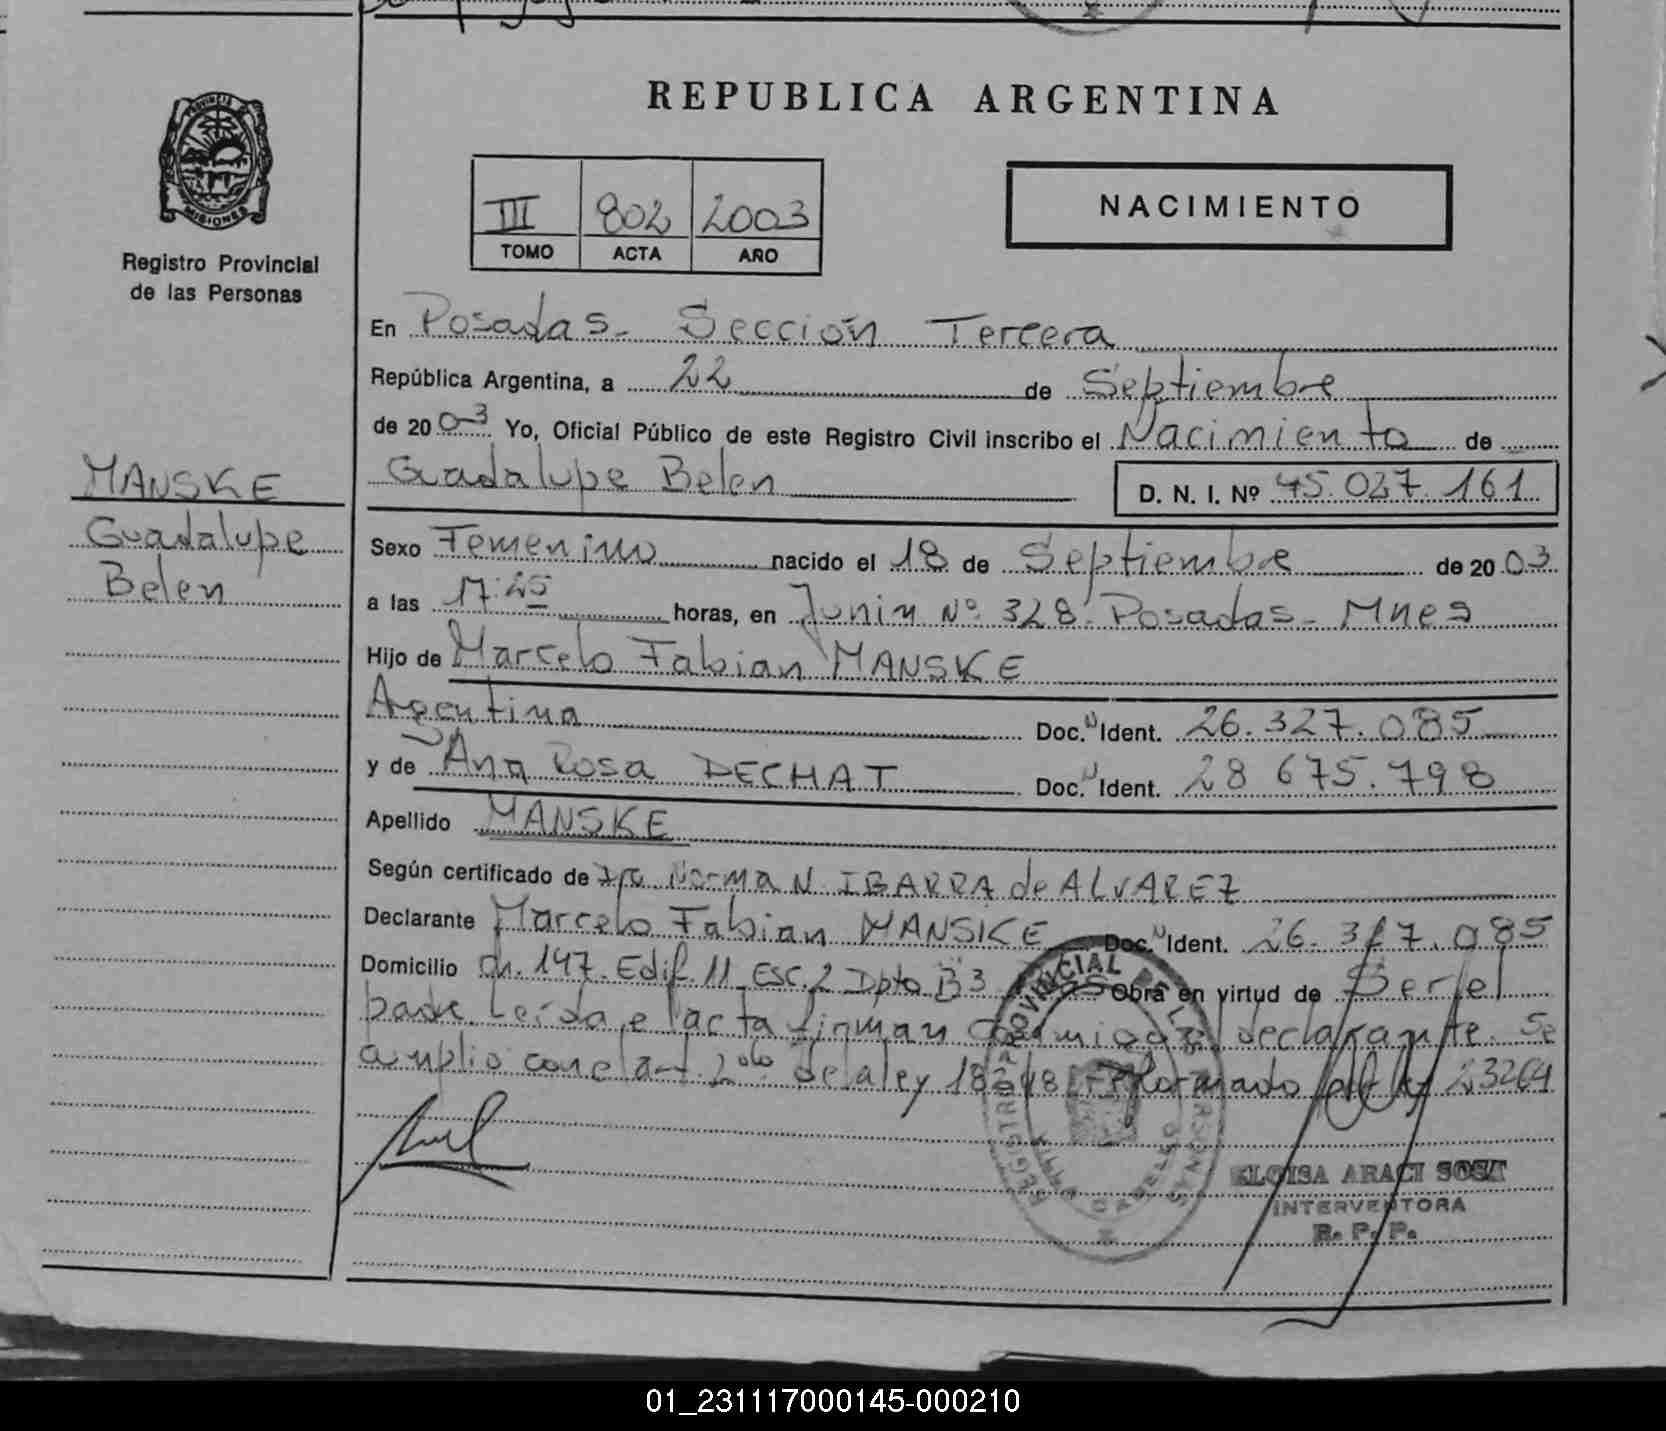 REPUBLICA ARGENTINA
PROVINCIA DE MISIONES
Registro Provincial
de las Personas
III 802 2003
TOMO ACTA AÑO
NACIMIENTO
En Posadas - Sección Tercera
República Argentina, a 22 de Septiembre
de 2003 Yo, Oficial Público de este Registro Civil inscribo el Nacimiento de
Guadalupe Belen D. N. I. Nº 45.027.161
MANSKE
Guadalupe
Belen
Sexo Femenino nacido el 18 de Septiembre de 2003
a las 17:25 horas, en Junin Nº 328. Posadas - Mnes
Hijo de Marcelo Fabian MANSKE
Argentina Doc. N Ident. 26.327.085
y de Ana Rosa DECHAT Doc. N Ident. 28 675.798
Apellido MANSKE
Según certificado de Dra Norma N. IBARRA de ALVAREZ
Declarante Marcelo Fabian MANSKE Doc. N Ident. 26.327.085
Domicilio Ch. 147. Edif. 11 Esc. 2 Dpto B3 Obra en virtud de Ser el
padre. Leída el acta firman conmigo el declarante. Se
cumplio con el art. 2º de la ley 18248 Reformado 23264
REGISTRO PROVINCIAL DE LAS PERSONAS
ELOISA ARACI SOSA
INTERVENTORA
R. P. P.
01_231117000145-000210